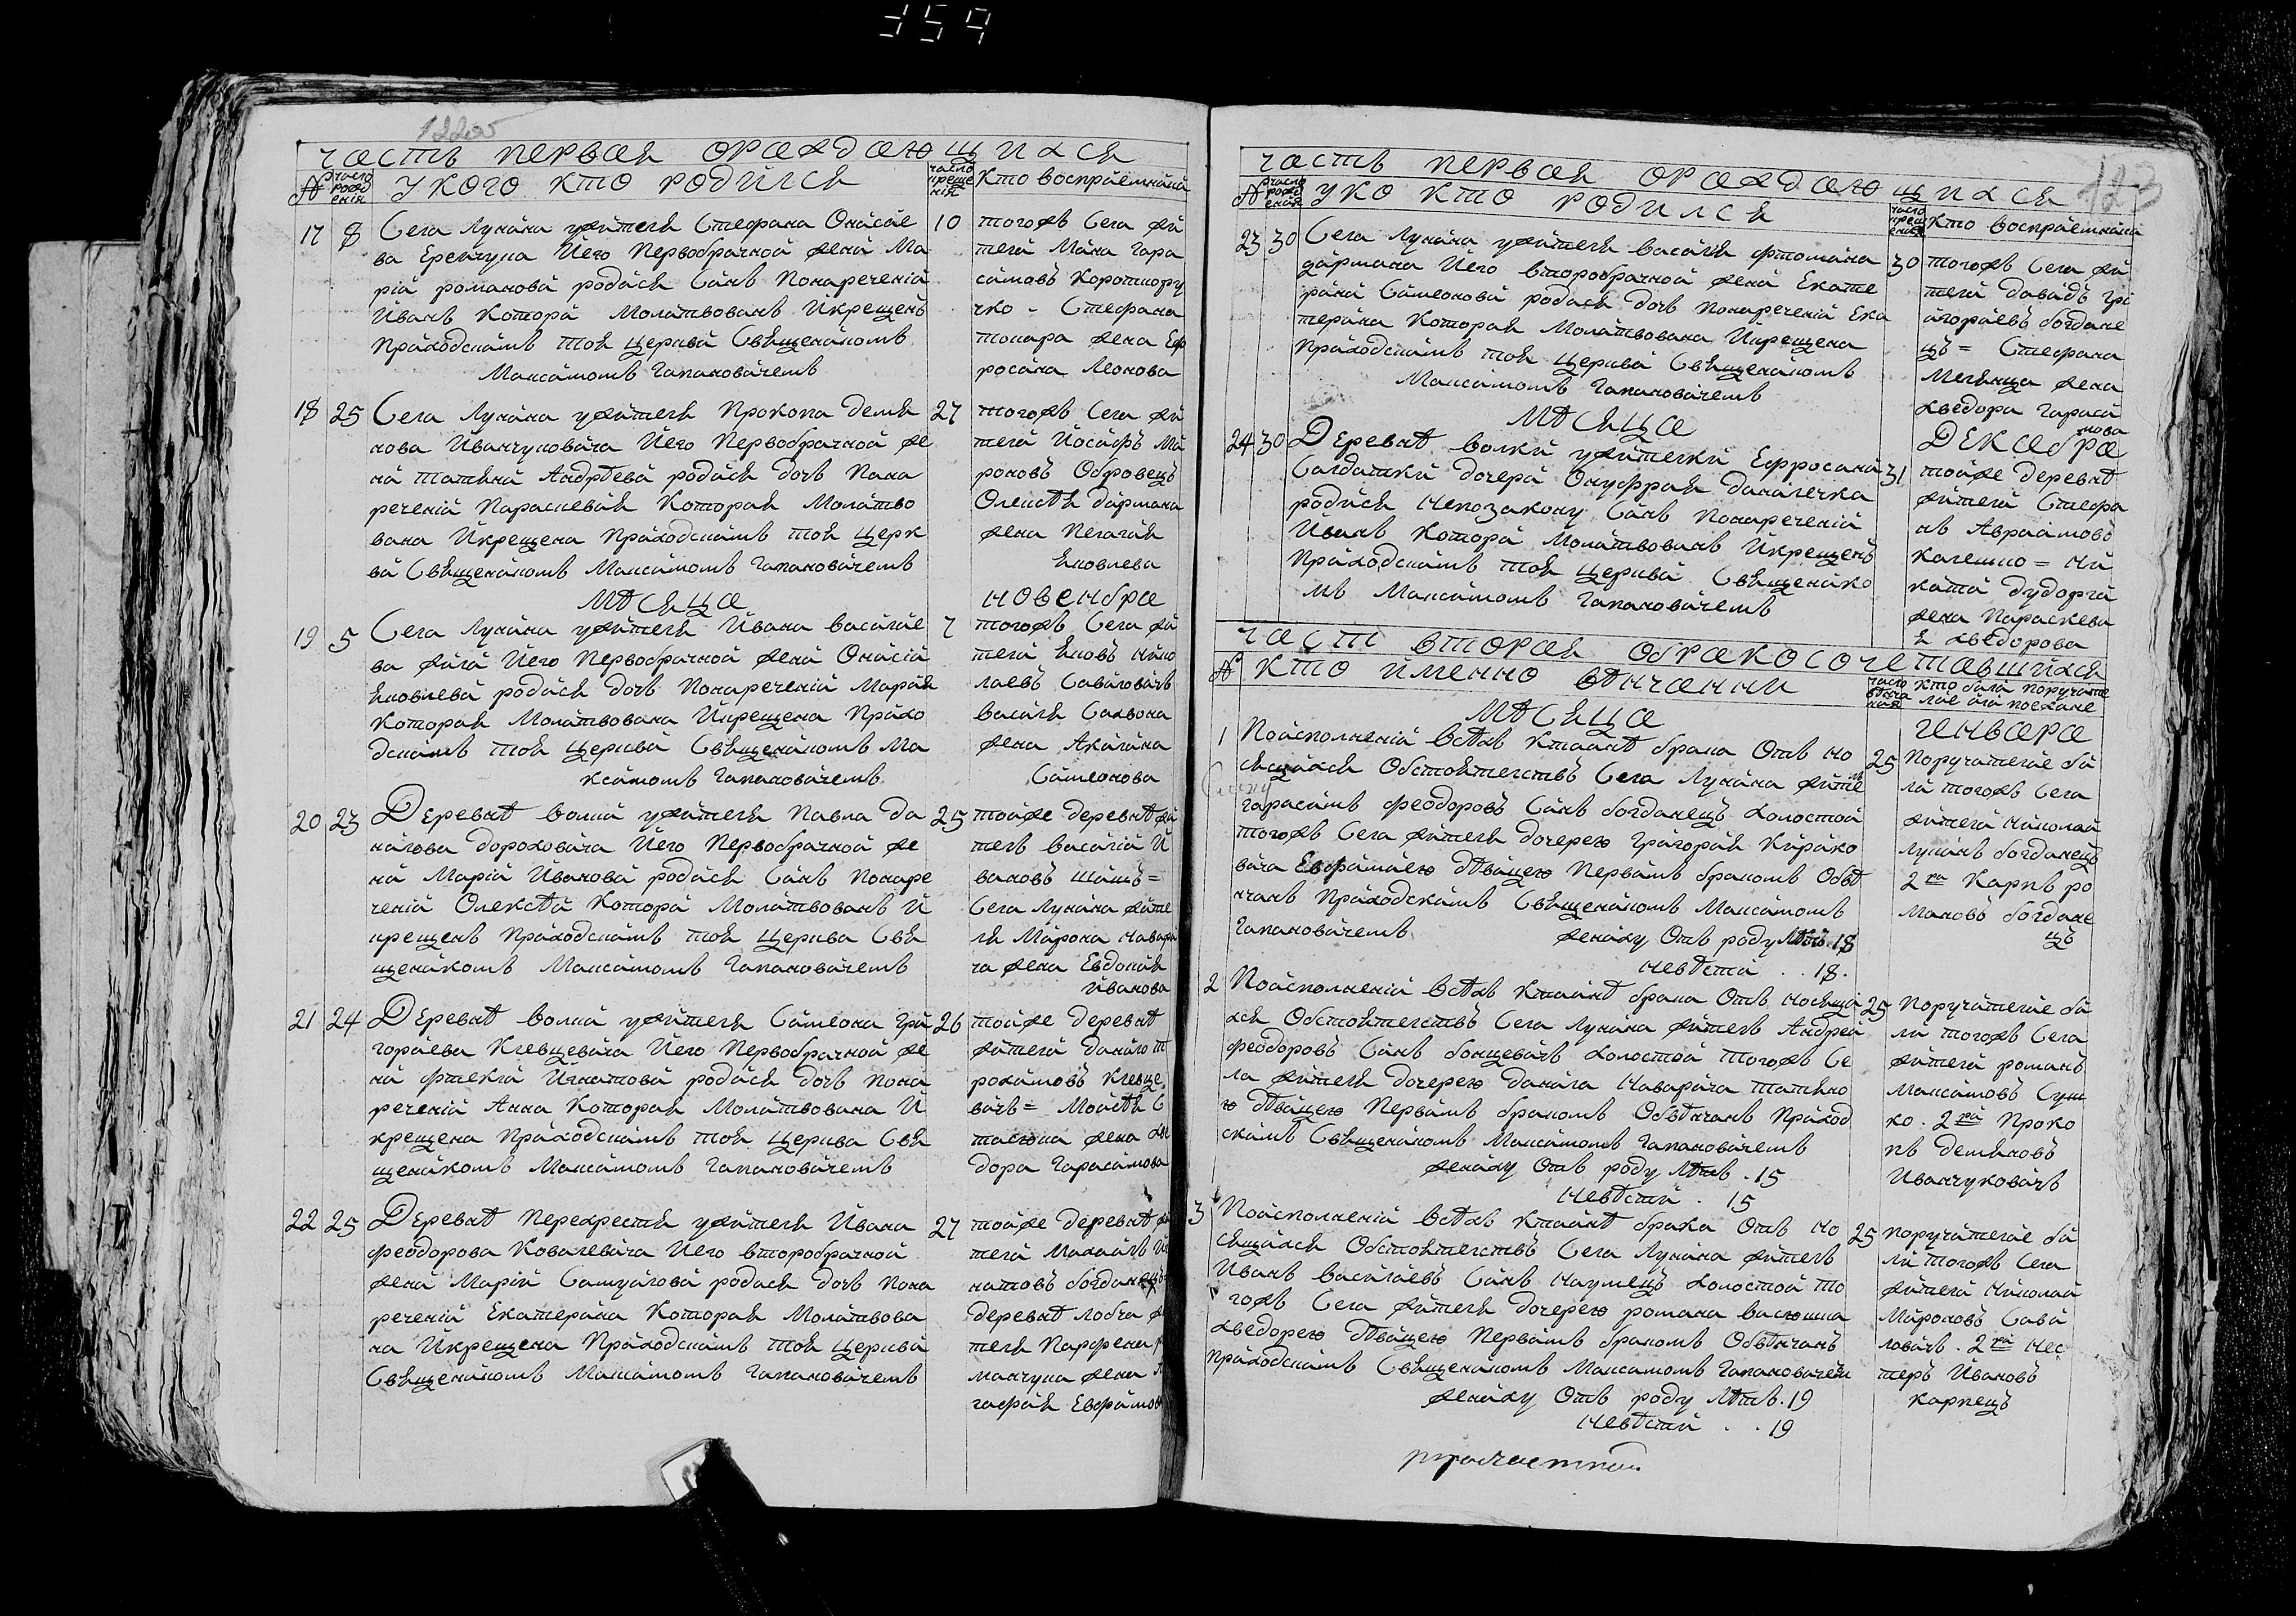 359
122об
часть первая ораждающихся
№
число рождения
У кого кто родился
число крещения
Кто восприемники
17 8
Села Лунина ужителя Стефана Онисие
ва Еренчука Иего Первобрачной жени Ма
рии романовой родися Синъ Понаречении
Иванъ Которий Молитвованъ Икрещенъ
Приходскимъ тоя Церкви Священикомъ
Максимомъ Гапановичемъ
10
тогожъ Села жи
тели Мина Гара
симовъ Коротшору
чко - Стефана
токара жена Еф
росина Леонова
18 25
Села Лунина ужителя Прокопа демя
нова Иванчуковича Иего Первобрачной же
ни татяни Андреевой родися дочь Пона
речении Параскевия Которая Молитво
вана Икрещена Приходскимъ тоя Церк
ви Священикомъ Максимомъ Гапановичемъ
27
тогожъ Села жи
тели Иосифъ Ми
роновъ Обровецъ
Олексея дармана
жена Пелагия
Яковлева
МѢСЯЦА
НОВЕНБРА
19 5
Села Лунина ужителя Ивана Василие
ва жила Иего Первобрачной жени Онисии
Яковлевой родися дочь Понаречении Мария
Которая Молитвована Икрещена Прихо
дскимъ тоя Церкви Священикомъ Ма
ксимомъ Гапановичемъ
7
тогожъ Села жи
тели Яковъ Нико
лаевъ Савиловичъ
Василя Сахвона
жена Акилина
Симеонова
20 23
Деревнѣ Волки ужителя Павла Да
нилова Дороховича Иего Первобрачной же
ни Марии Ивановой родися Синъ Понаре
чении Олексѣй Которий Молитвованъ И
крещенъ Приходскимъ тоя Церкви Свя
щеникомъ Максимомъ Гапановичемъ
25
тойже деревнѣ жи
тель Василий И
вановъ Шишъ =
Села Лунина жите
ля Мирона Навари
ча жена Евдокия
Иванова
21 24
Деревнѣ Волки ужителя Симеона Гри
гориева Клевцевича Иего Первобрачной же
ни фтеклы Игнатовой родися дочь Пона
речении Анна Которая Молитвована И
крещена Приходскимъ тоя Церкви Свя
щеникомъ Максимомъ Гапановичемъ
26
тойже деревнѣ
жители данило т
рохимовъ Клевце
вичъ = Моисѣя С
жена Хве
дора Гарасимова
22 25
Деревнѣ Перехрестя ужителя Ивана
феодорова Ковалевича Иего Второбрачной
жени Марии Самуиловой родися дочь Пона
речении Екатерина Которая Молитвова
на Икрещена Приходскимъ тоя Церкви
Священикомъ Максимомъ Гапановичемъ
27
тойже деревнѣ жи
тели Михаилъ Иг
натовъ богданецъ
деревнѣ лобча жи
теля Парфена
манчука жена А
гафия Евфимов
123
часть первая ораждающихся
№
число рождения
У кого кто родился
число крещения
Кто восприемники
23 30
Села Лунина ужителя Василия фтомина
дармана Иего Второобрачной жени Екате
рини Симеоновой родися дочь Понаречении Ека
терина Которая Молитвована Икрещена
Приходскимъ тоя Церкви Священикомъ
Максимомъ Гапановичемъ
30
тогожъ Села жи
тели давидъ Гри
гориевъ богдане
цъ = Стефана
жена
Хведора Гараси
мова
МѢСЯЦА
ДЕКАбРА
24 30
Деревнѣ Волки ужителки Ефросини
Салдатки дочери Онуфрия данилечка
родися Непозакону Синъ Понаречении
Иванъ Которий Молитвованъ Икрещенъ
Приходскимъ тоя Церкви Священико
мъ Максимомъ Гапановичемъ
31
тойже деревнѣ
жители Стефа
нъ Авраамовъ
Ни
кити дудорги
жена Параскеви
я Хведорова
часть вторая обракосочетавшихся
№
кто имено вѣнчанни
число вѣнчания
кто били поручите
лие или поежане
МѢСЯЦА
ГЕНВАРА
1
Поисполнении всѣхъ Ктаинѣ брака Отъ но
сящихся Обстоятелствъ Села Лунина жите
гарасимъ феодоровъ Синъ богданецъ холостой
тогожъ Села жителя дочерею Григория Кирико
вича Евфимиею дѣвицею Первимъ бракомъ Обвѣ
нчанъ Приходскимъ Священикомъ Максимомъ
Гапановичемъ
жениху Отъ роду лѣтъ . 18
Невѣсти . . 18.
25
Поручителие би
ли тогожъ Села
жители Николай
Лукинъ богданецъ
2й Карпъ ро
мановъ богдане
цъ
2
Поисполнении всѣхъ Ктаинѣ брака Отъ носящи
хся Обстоятелствъ Села Лунина житель Андрей
феодоровъ Синъ бонцевичъ холостой тогожъ Се
ла жителя дочерею данила Наварича татяно
ю дѣвицею Первимъ бракомъ Обвѣнчанъ Приход
скимъ Священикомъ Максимомъ Гапановичемъ
жениху Отъ роду лѣтъ . 15
Невѣсти . 15
25
Поручителие би
ли тогожъ Села
жители романъ
Максимовъ Суш
ко . 2й Проко
пъ демяновъ
Иванчуковичъ
3
Поисполнении всѣхъ Ктаинѣ брака Отъ но
сящихся Обстоятелствъ Села Лунина житель
Иванъ Василиевъ Синъ Наумецъ холостой то
гожъ Села жителя дочерею романа васюшка
Хведорею дѣвицею Первимъ бракомъ Обвѣнчанъ
Приходскимъ Священикомъ Максимомъ Гапановичем
жениху Отъ роду лѣтъ . 19
Невѣсти . . 19
25
поручителие би
ли тогожъ Села
жители Николай
Мироновъ Сави
ловичъ . 2й Нес
теръ Ивановъ
карпецъ